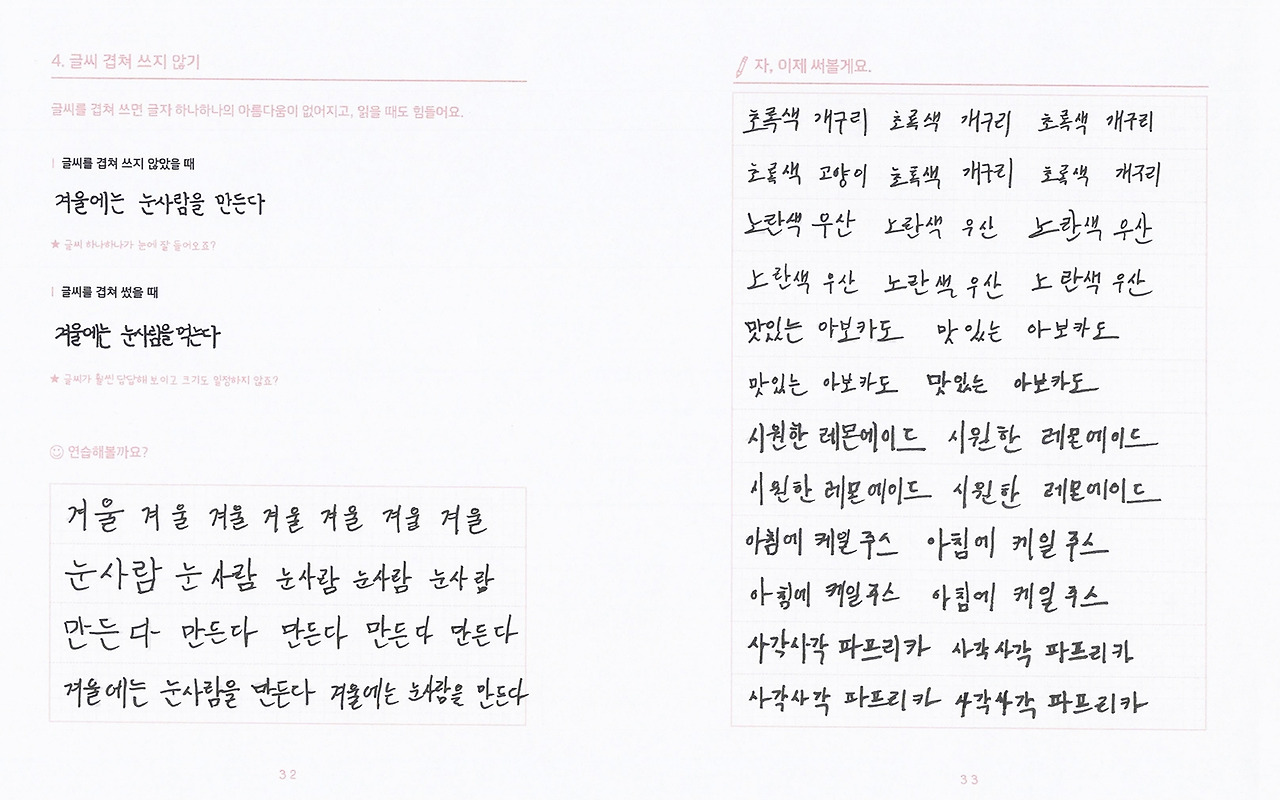 4. 글씨 겹쳐 쓰지 않기
글씨를 겹쳐 쓰면 글자 하나하나의 아름다움이 없어지고, 읽을 때도 힘들어요.
글씨를 겹쳐 쓰지 않았을 때
겨울에는 눈사람을 만든다
★ 글씨 하나하나가 눈에 잘 들어오죠?
글씨를 겹쳐 썼을 때
겨울에는 눈사람을 먹는다
★ 글씨가 훨씬 답답해 보이고 크기도 일정하지 않죠?
연습해볼까요?
겨울 겨울 겨울 겨울 겨울 겨울 겨울
눈사람 눈사람 눈사람 눈사람 눈사람
만든다 만든다 만든다 만든다 만든다
겨울에는 눈사람을 만든다 겨울에는 눈사람을 만든다
32
자, 이제 써볼게요.
초록색 개구리 초록색 개구리 초록색 개구리
초록색 고양이 초록색 개구리 초록색 개구리
노란색 우산 노란색 우산 노란색 우산
노란색 우산 노란색 우산 노란색 우산
맛있는 아보카도 맛있는 아보카도
맛있는 아보카도 맛있는 아보카도
시원한 레몬에이드 시원한 레몬에이드
시원한 레몬에이드 시원한 레몬에이드
아침에 케일주스 아침에 케일주스
아침에 케일주스 아침에 케일주스
사각사각 파프리카 사각사각 파프리카
사각사각 파프리카 사각사각 파프리카
33